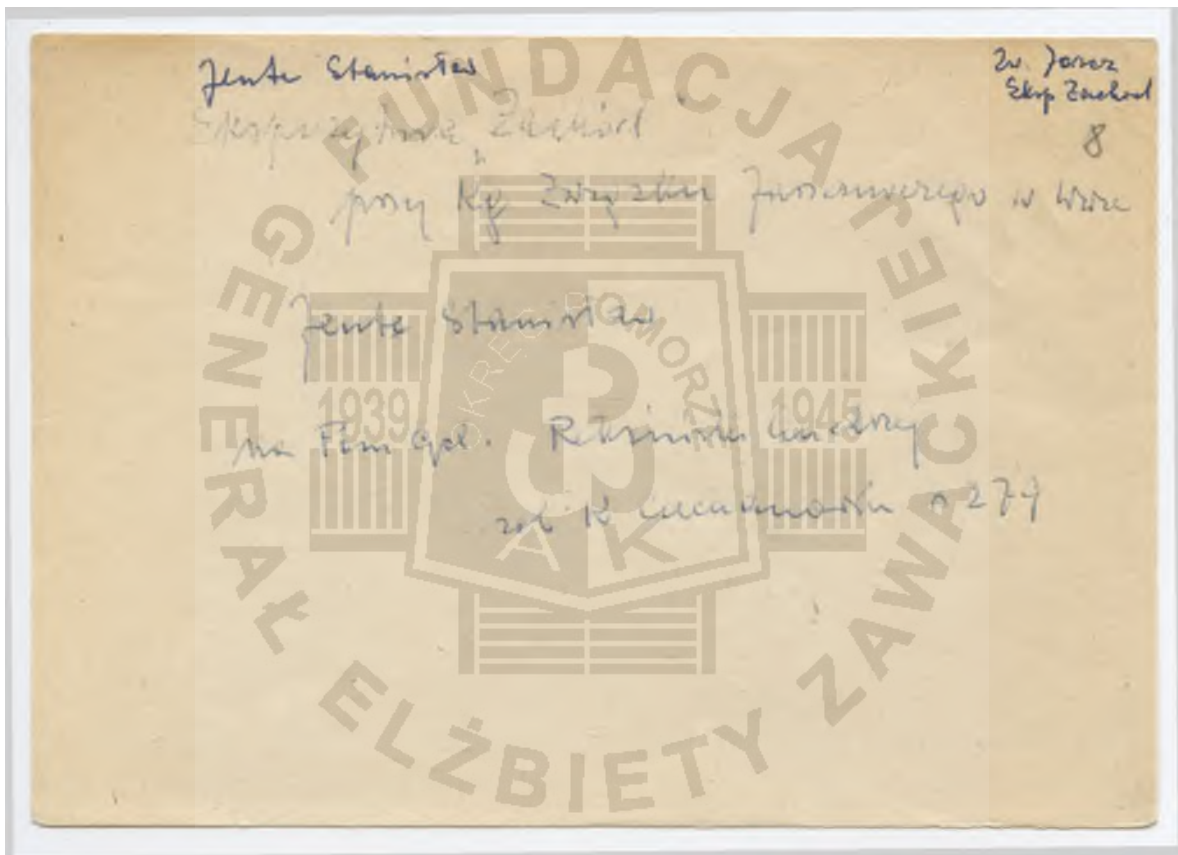 Jente Stanisław
Zw. Jaszcz
Eksp Zachod
8
Ekspozytura "Zachód"
przy Kg Związku Jaszczurczego w Wwie
Jente Stanisław
na Pom gdz.
zob K n 274
FUNDACJA
GENERAŁ ELŻBIETY ZAWACKIEJ
OKRĘG POMORZE
1939
1945
AK